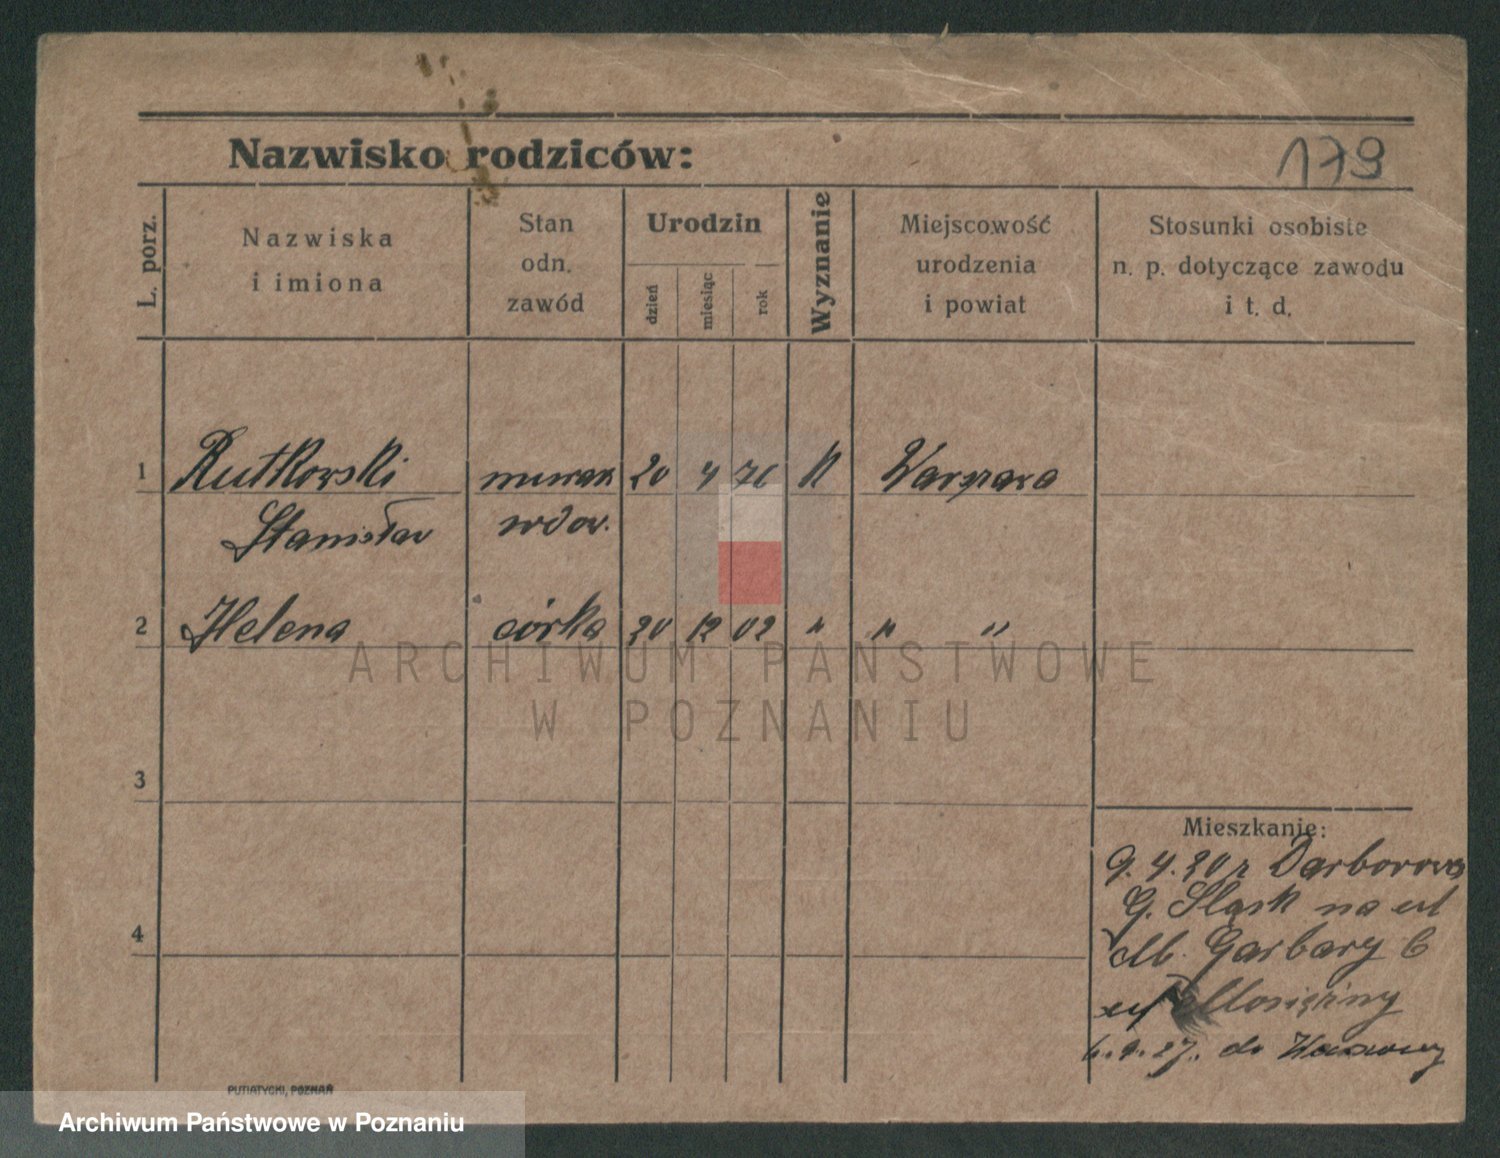 179
Nazwisko rodziców:
L. porz.
Nazwiska
i imiona
Stan
odn.
zawód
Urodzin
dzień
miesiąc
rok
Wyznanie
Miejscowość
urodzenia
i powiat
Stosunki osobiste
n. p. dotyczące zawodu
i t. d.
1 Rutkowski murarz 20 4 76 K Warszawa
Stanisław wdow.
2 Helena córka 20 12 02 " " "
3
4
Mieszkanie:
9. 4. 20 r
G. Śląsk na
Garbary 6
6. 9. 27. do Warszawy
PUTIATYCKI, POZNAŃ
ARCHIWUM PAŃSTWOWE
W POZNANIU
Archiwum Państwowe w Poznaniu